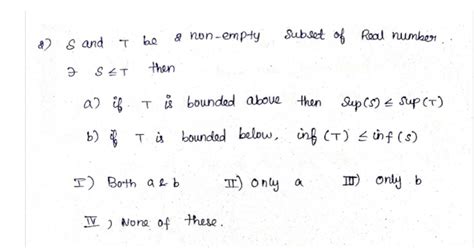 8) S and T be 2 non-empty Subset of Real number.
∋ S ≤ T then
a) if T is bounded above then Sup(S) ≤ Sup(T)
b) if T is bounded below, inf (T) ≤ inf(S)
I) Both a & b II) only a III) only b
IV) None of these.